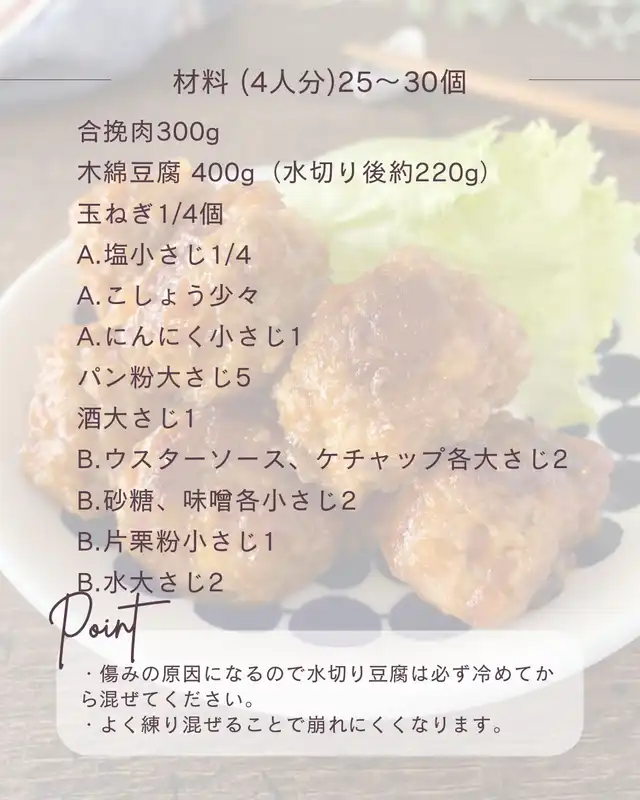 材料 (4人分)25〜30個
合挽肉300g
木綿豆腐 400g（水切り後約220g）
玉ねぎ1/4個
A.塩小さじ1/4
A.こしょう少々
A.にんにく小さじ1
パン粉大さじ5
酒大さじ1
B.ウスターソース、ケチャップ各大さじ2
B.砂糖、味噌各小さじ2
B.片栗粉小さじ1
B.水大さじ2
Point
・傷みの原因になるので水切り豆腐は必ず冷めてか
ら混ぜてください。
・よく練り混ぜることで崩れにくくなります。